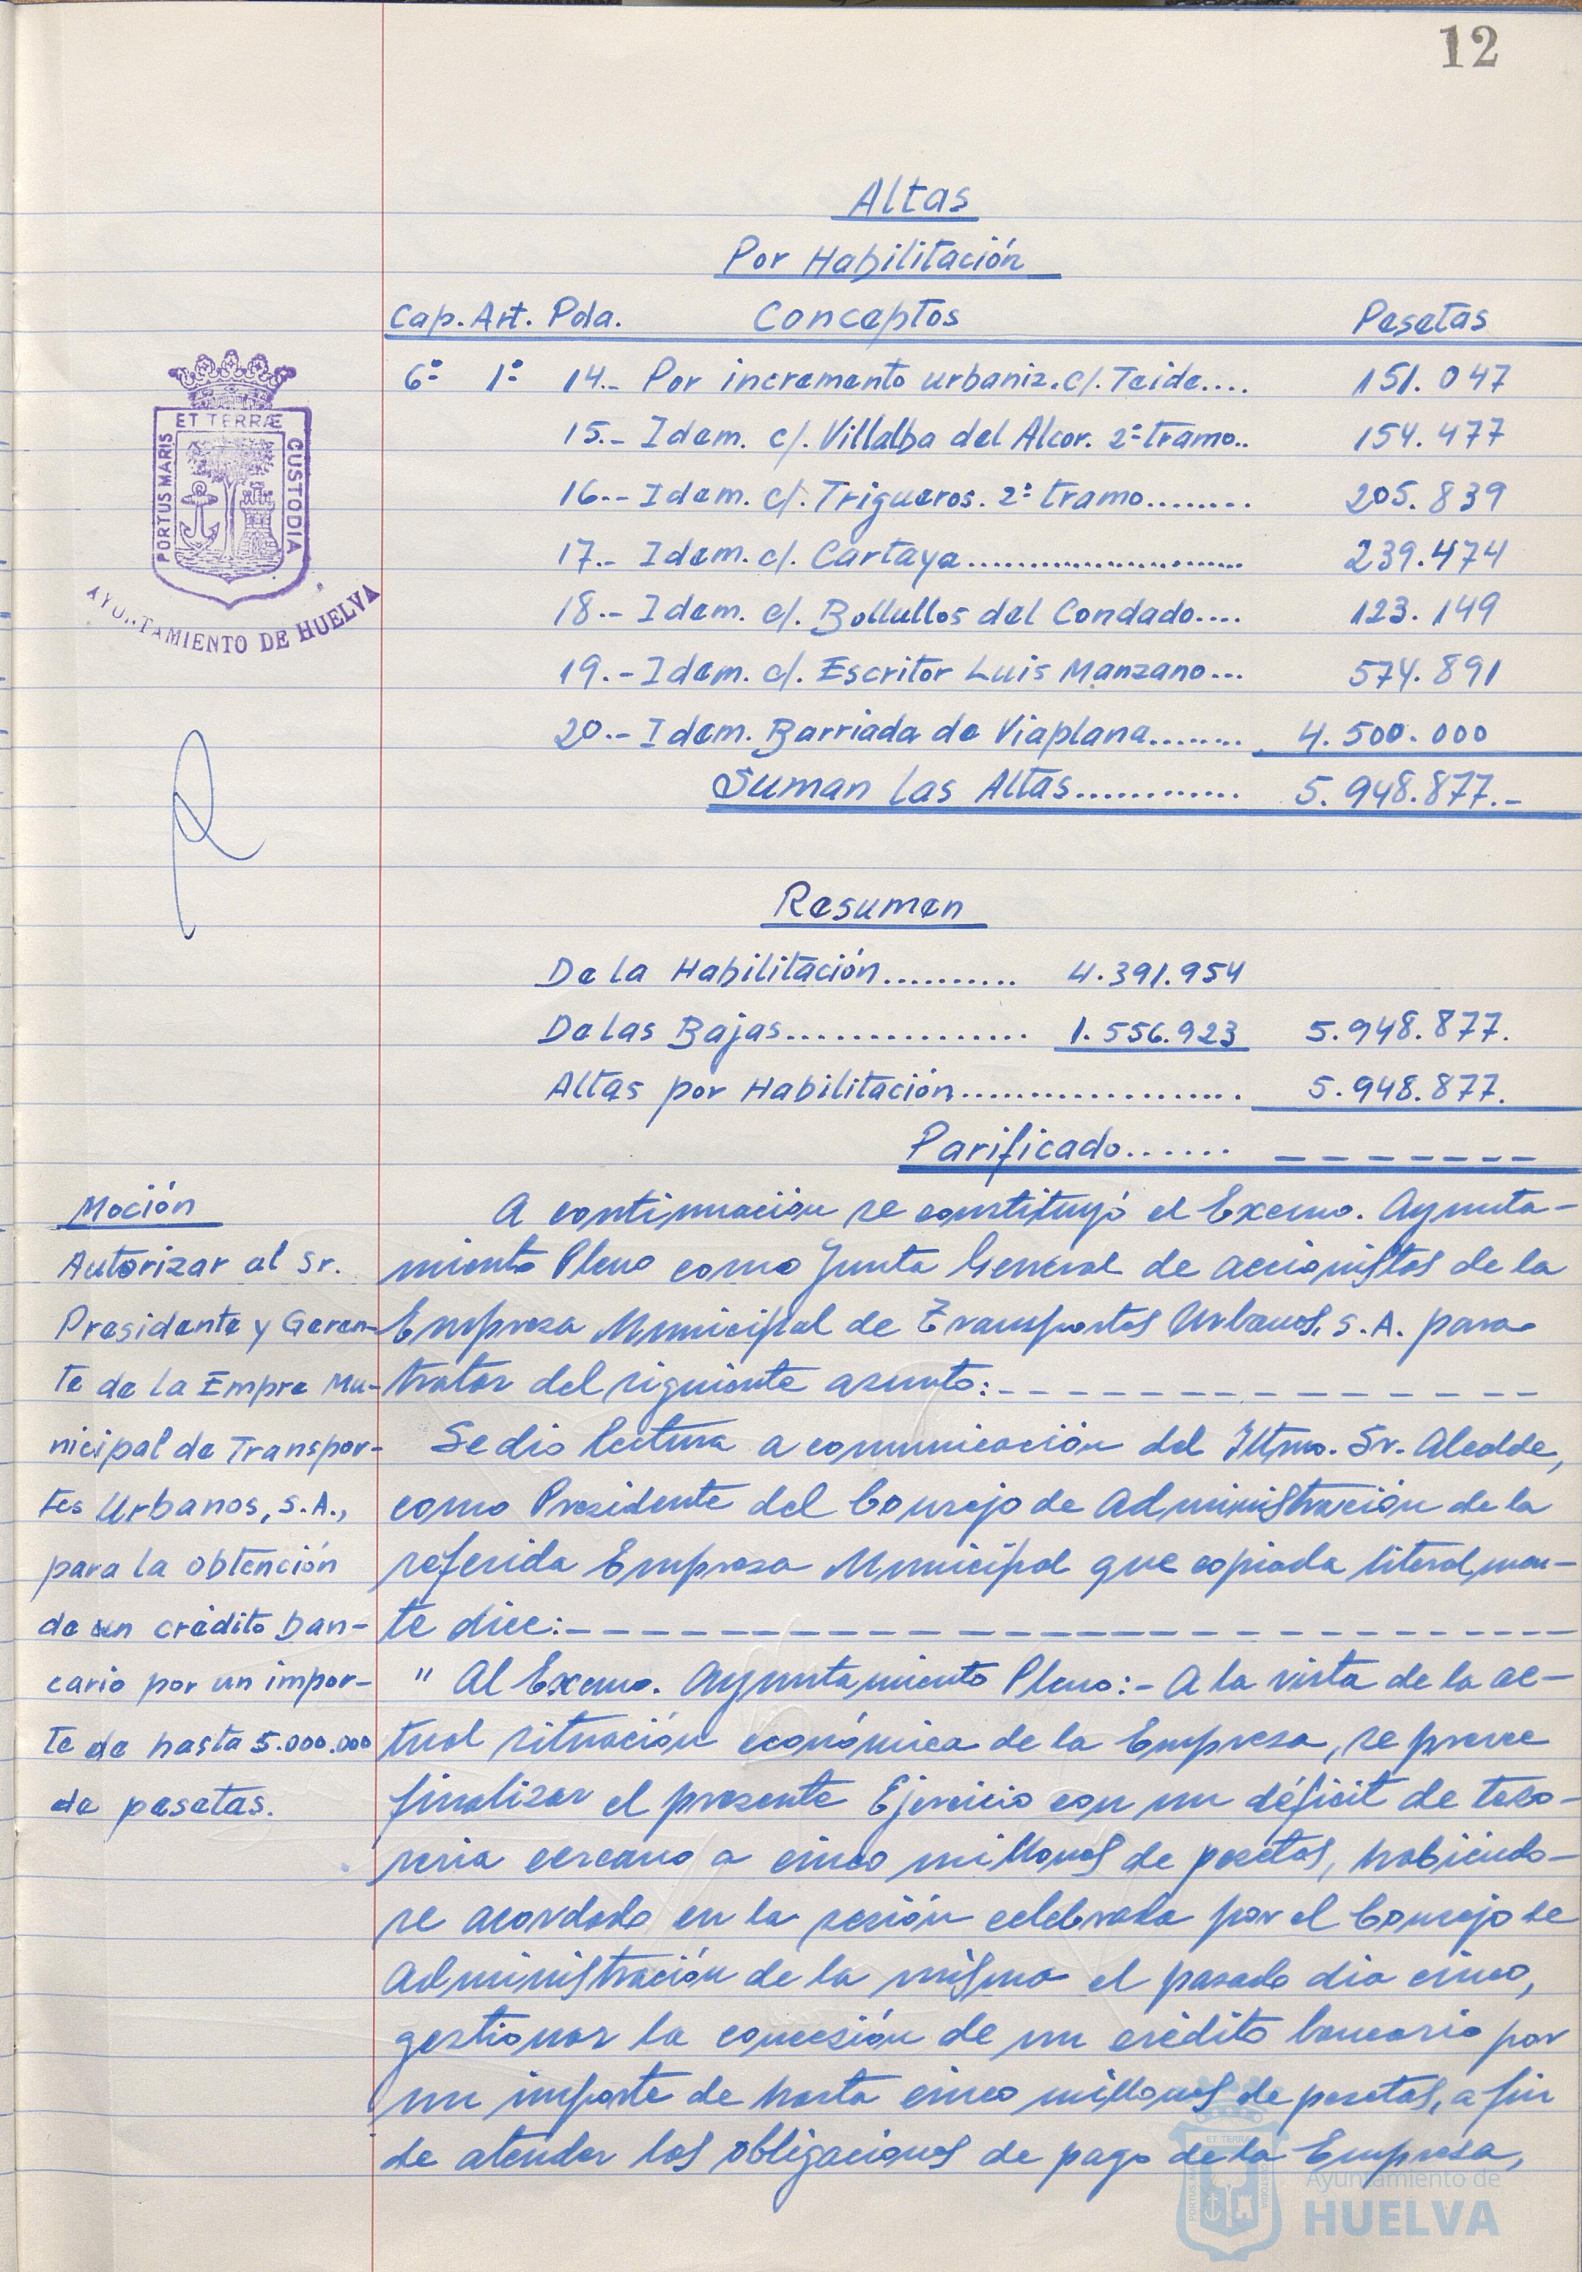 12
Altas
Por Habilitación
Cap. Art. Pda. Conceptos Pesetas
6º 1º 14.- Por incremento urbaniz. c/. Teide.... 151.047
15.- Idem. c/. Villalba del Alcor. 2º tramo.. 154.477
16.- Idem. c/. Trigueros. 2º tramo........ 205.839
17.- Idem. c/. Cartaya........................ 239.474
18.- Idem. c/. Bollullos del Condado.... 123.149
19.- Idem. c/. Escritor Luis Manzano... 574.891
20.- Idem. Barriada de Viaplana........ 4.500.000
Suman las Altas............ 5.948.877.-
ET TERRÆ
PORTUS MARIS
CUSTODIA
AYUNTAMIENTO DE HUELVA
Resumen
De la Habilitación.......... 4.391.954
De las Bajas................ 1.556.923 5.948.877.
Altas por Habilitación.................... 5.948.877.
Parificado...... _ _ _ _ _ _ _
Moción
Autorizar al Sr.
Presidente y Geren-
te de la Empre Mu-
nicipal de Transpor-
tes Urbanos, S.A.,
para la obtención
de un crédito ban-
cario por un impor-
te de hasta 5.000.000
de pesetas.
A continuación se constituyó el Excmo. Ayunta-
miento Pleno como Junta General de accionistas de la
Empresa Municipal de Transportes Urbanos, S.A. para
tratar del siguiente asunto:- - - - - - - - - - - - -
Se dio lectura a comunicación del Iltmo. Sr. Alcalde,
como Presidente del Consejo de Administración de la
referida Empresa Municipal que copiada literalmen-
te dice:- - - - - - - - - - - - - - - - - - - - - - - -
" Al Excmo. Ayuntamiento Pleno:- A la vista de la ac-
tual situación económica de la Empresa, se preve
finalizar el presente Ejercicio con un déficit de teso-
reria cercano a cinco millones de pesetas, habiendo-
se acordado en la sesión celebrada por el Consejo de
Administración de la misma el pasado dia cinco,
gestionar la concesión de un crédito bancario por
un importe de hasta cinco millones de pesetas, a fin
de atender las obligaciones de pago de la Empresa,
ET TERRÆ
Ayuntamiento de
HUELVA